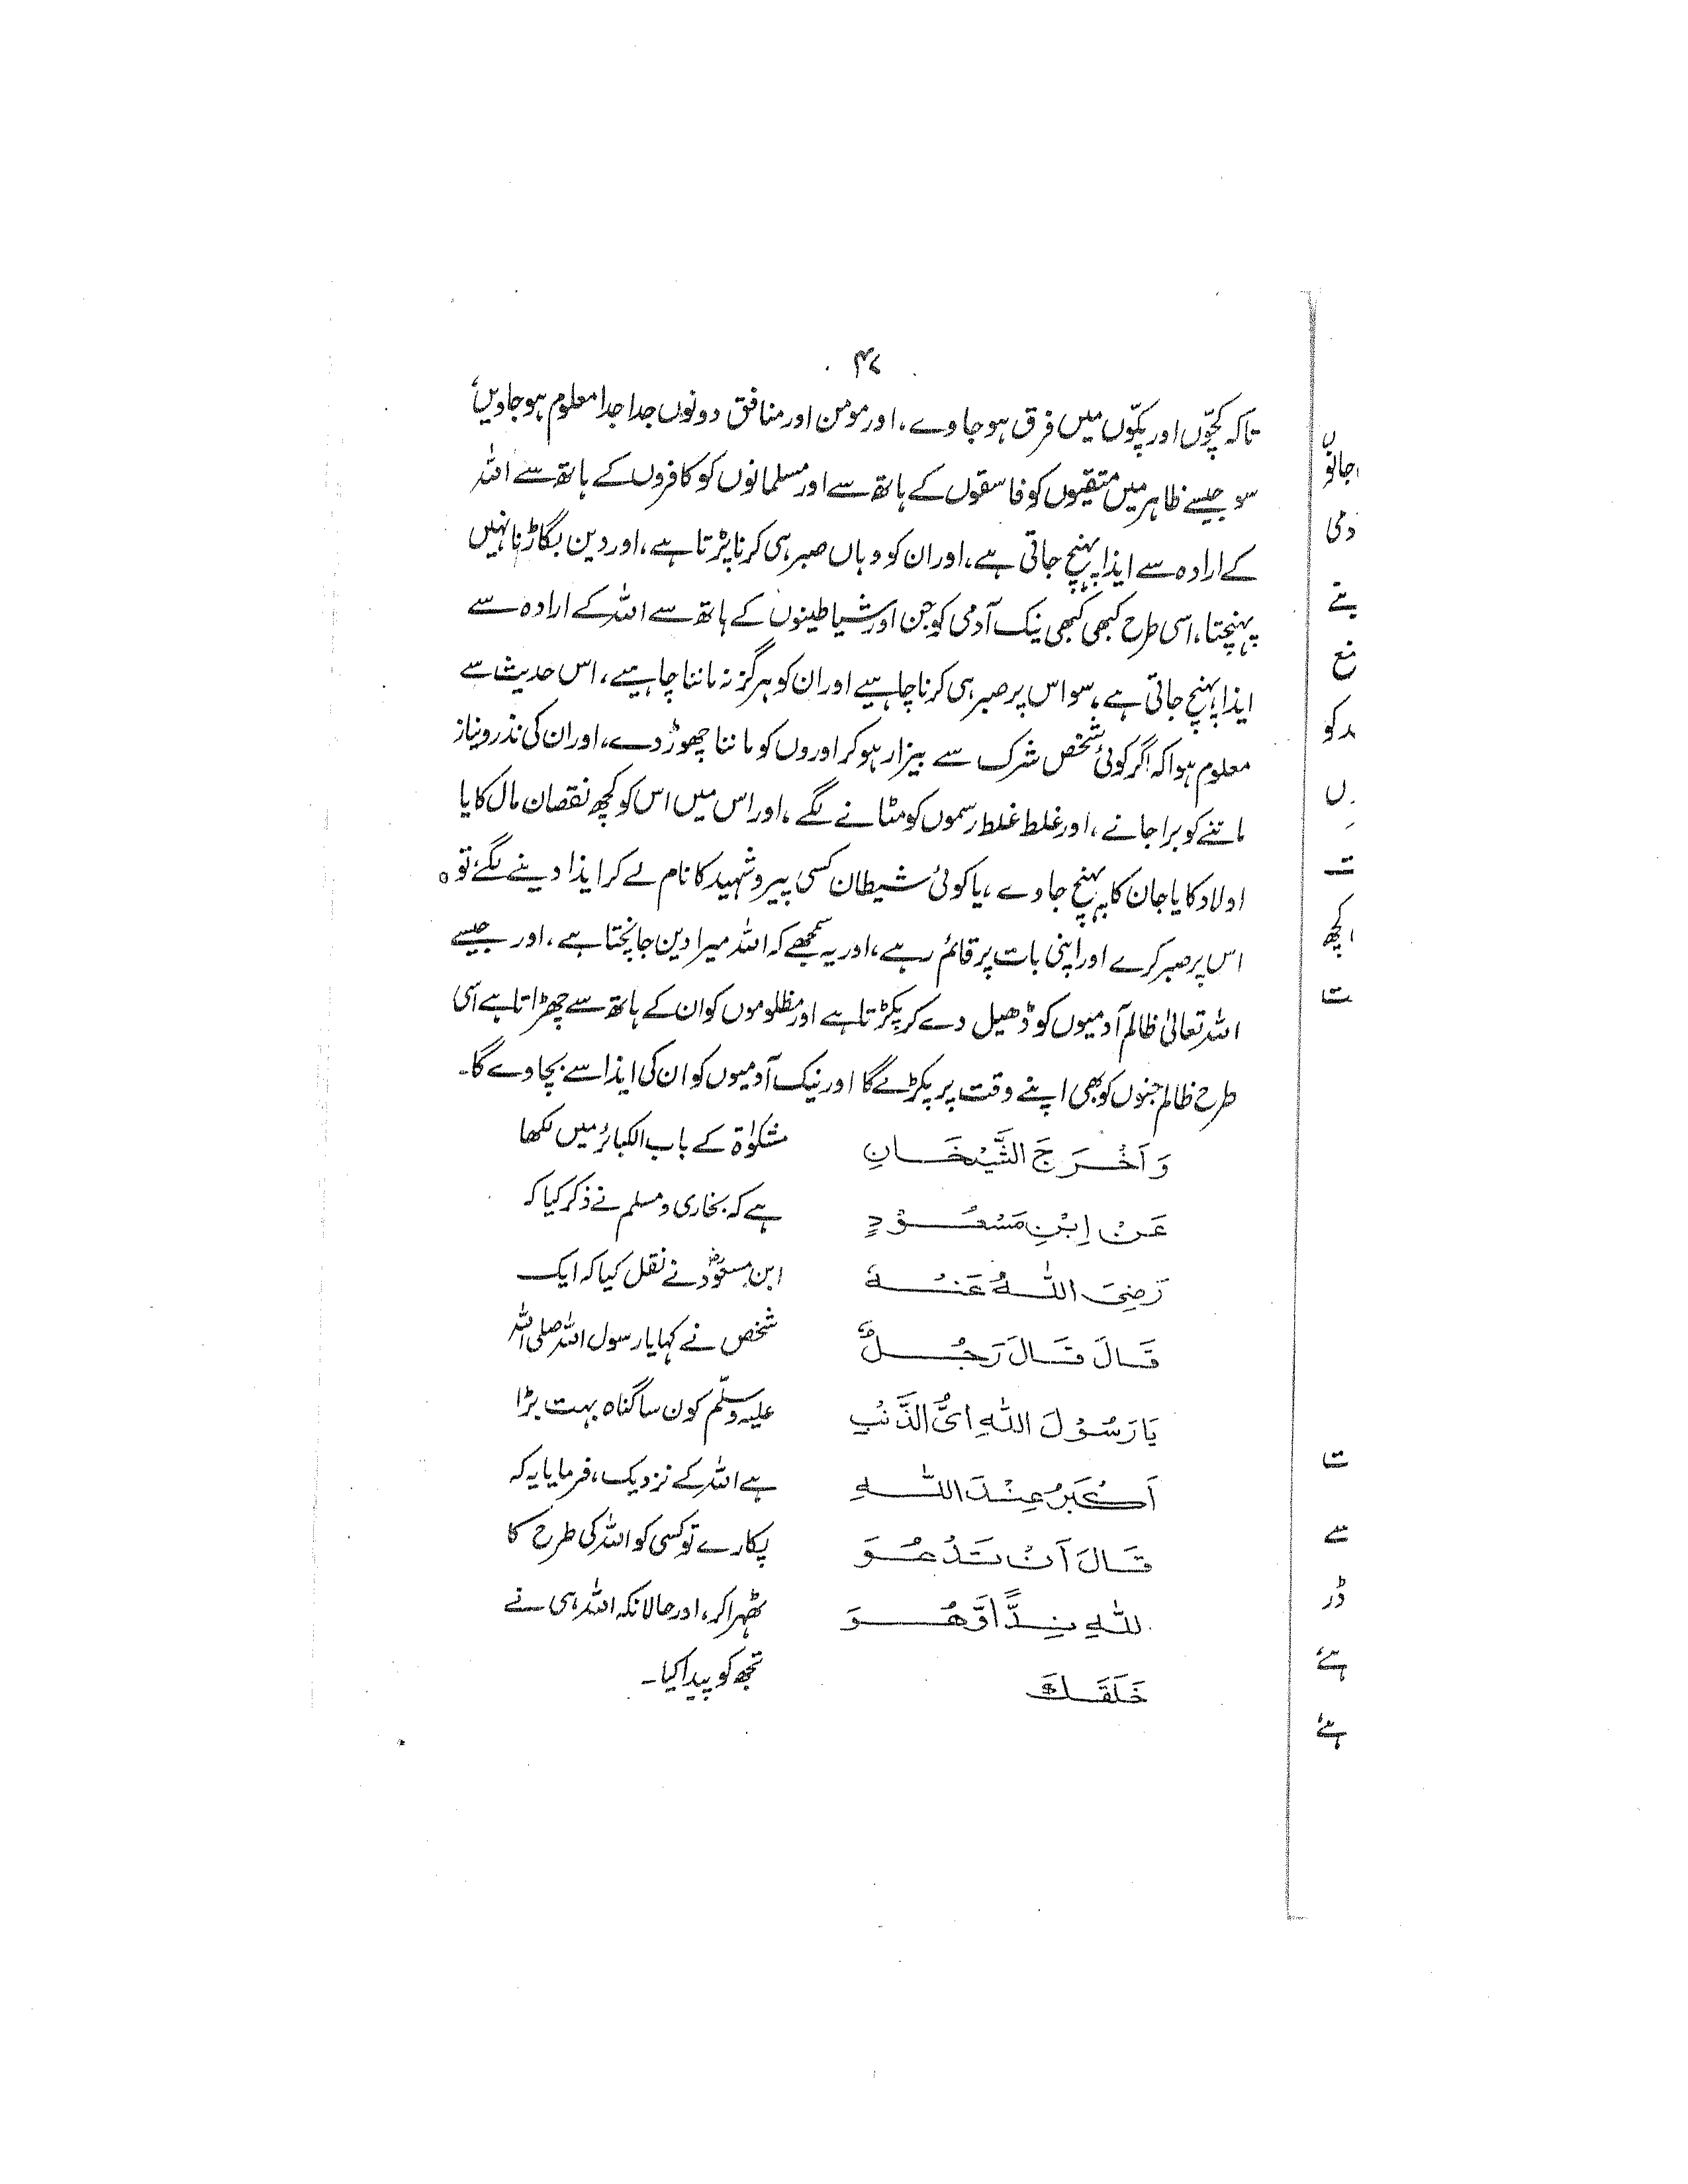 ۴۷
تاکہ کچّوں اور پکّوں میں فرق ہو جاوے، اور مومن اور منافق دونوں جدا جدا معلوم ہو جاویں
سو جیسے ظاہر میں متقیوں کو فاسقوں کے ہاتھ سے اور مسلمانوں کو کافروں کے ہاتھ سے اللہ
کے ارادہ سے ایذا پہنچ جاتی ہے، اور ان کو وہاں صبر ہی کرنا پڑتا ہے، اور دین بگاڑنا نہیں
پہنچتا، اسی طرح کبھی کبھی نیک آدمی کو جن اور شیاطینوں کے ہاتھ سے اللہ کے ارادہ سے
ایذا پہنچ جاتی ہے، سو اس پر صبر ہی کرنا چاہیے اور ان کو ہرگز نہ ماننا چاہیے، اس حدیث سے
معلوم ہوا کہ اگر کوئی شخص شرک سے بیزار ہو کر اوروں کو ماننا چھوڑ دے، اور ان کی نذر و نیاز
ماننے کو برا جانے، اور غلط غلط رسموں کو مٹانے لگے، اور اس میں اس کو کچھ نقصان مال کا یا
اولاد کا یا جان کا پہنچ جاوے، یا کوئی شیطان کسی پیر و شہید کا نام لے کر ایذا دینے لگے تو
اس پر صبر کرے اور اپنی بات پر قائم رہے، اور یہ سمجھے کہ اللہ میرا دین جانچتا ہے، اور جیسے
اللہ تعالیٰ ظالم آدمیوں کو ڈھیل دے کر پکڑتا ہے اور مظلوموں کو ان کے ہاتھ سے چھڑاتا ہے اسی
طرح ظالم جنوں کو بھی اپنے وقت پر پکڑے گا اور نیک آدمیوں کو ان کی ایذا سے بچاوے گا۔
وَ اَخْرَجَ الشَّیْخَانِ
عَنْ اِبْنِ مَسْعُوْدٍ
رَضِیَ اللّٰہُ عَنْہُ
قَالَ قَالَ رَجُلٌ
یَا رَسُوْلَ اللّٰہِ اَیُّ الذَّنْبِ
اَکْبَرُ عِنْدَ اللّٰہِ
قَالَ اَنْ تَدْعُوَ
لِلّٰہِ نِدًّا وَّھُوَ
خَلَقَکَ
مشکوٰۃ کے باب الکبائر میں لکھا
ہے کہ بخاری و مسلم نے ذکر کیا کہ
ابن مسعودؓ نے نقل کیا کہ ایک
شخص نے کہا یا رسول اللہ صلی اللہ
علیہ وسلّم کون سا گناہ بہت بڑا
ہے اللہ کے نزدیک، فرمایا یہ کہ
پکارے تو کسی کو اللہ کی طرح کا
ٹھہرا کر، اور حالانکہ اللہ ہی نے
تجھ کو پیدا کیا۔